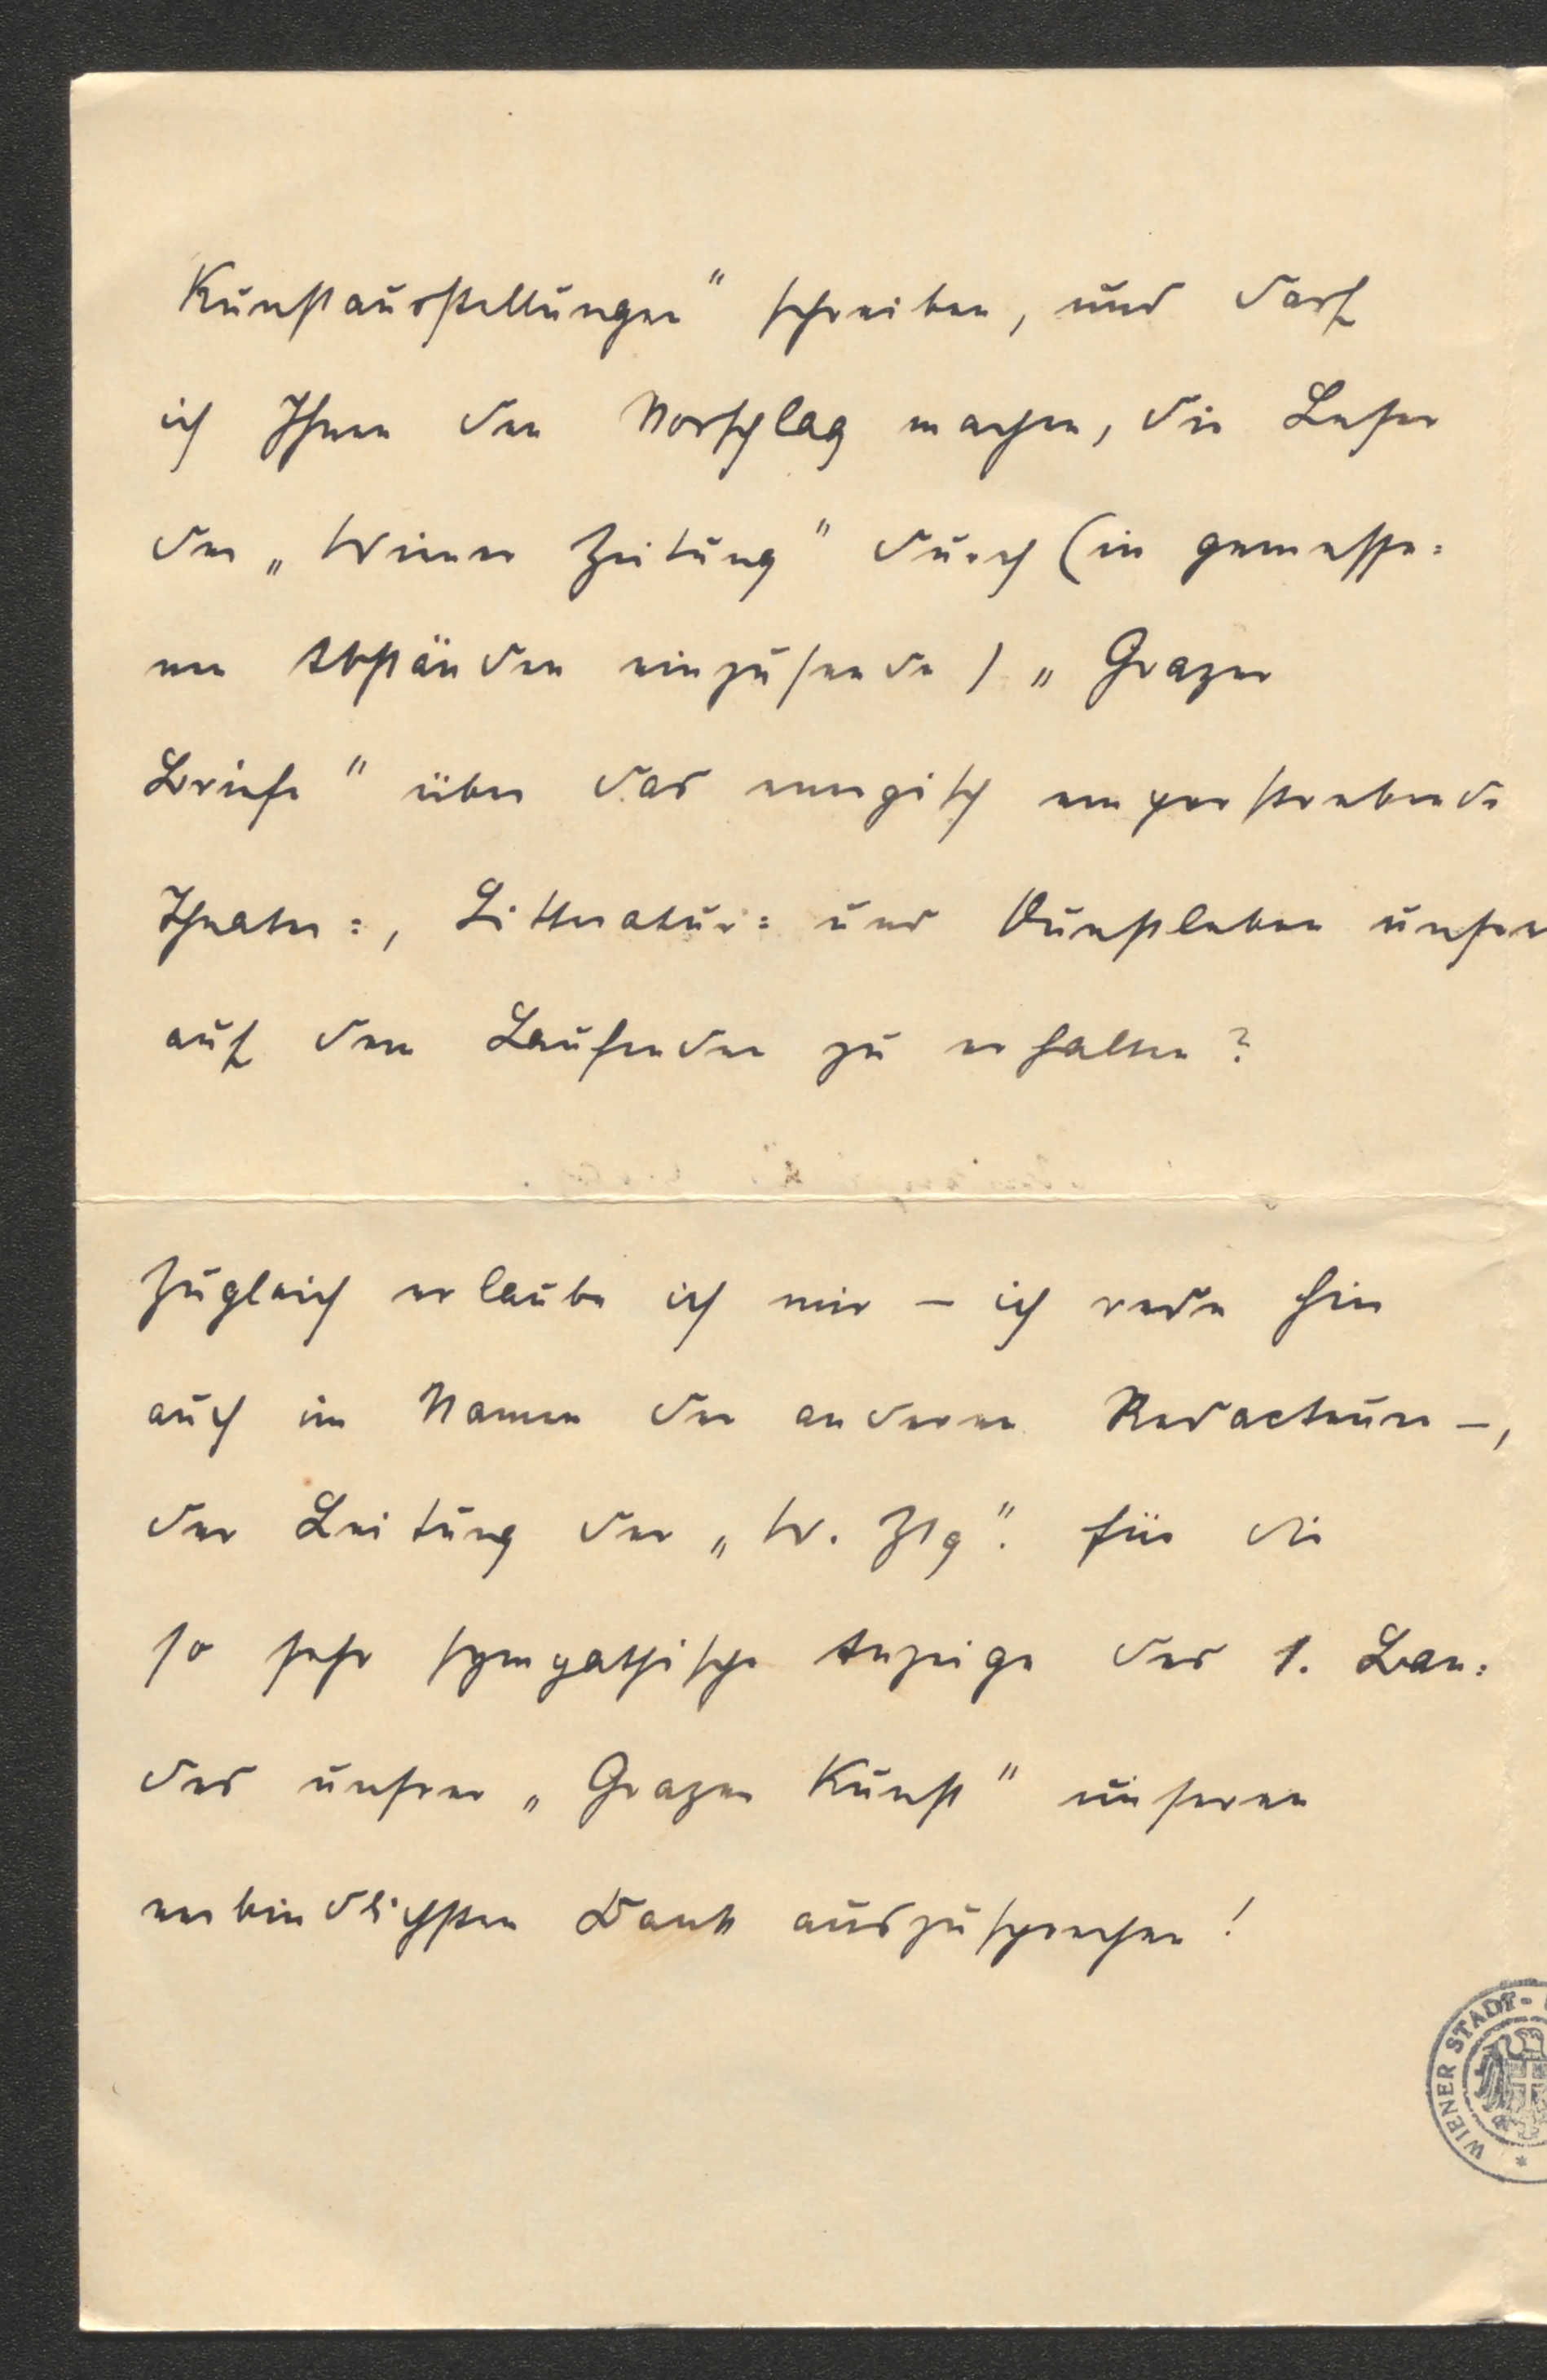 Kunstausstellungen" schreiben, und darf
ich Ihnen den Vorschlag machen, die Leser
der „Wiener Zeitung" durch (in gemesse=
nen Abständen einzusende) „Grazer
Briefe" über das energisch emporstrebende
Theater=, Litteratur= und Kunstleben unser
auf dem Laufenden zu erhalten?
Zugleich erlaube ich mir – ich rede hier
auch im Namen der anderen Redacteure –,
der Leitung der „W. Ztg". für die
so sehr sympathische Anzeige des 1. Ban=
des unserer „Grazer Kunst" unseren
verbindlichsten Dank auszusprechen!
WIENER STADT-